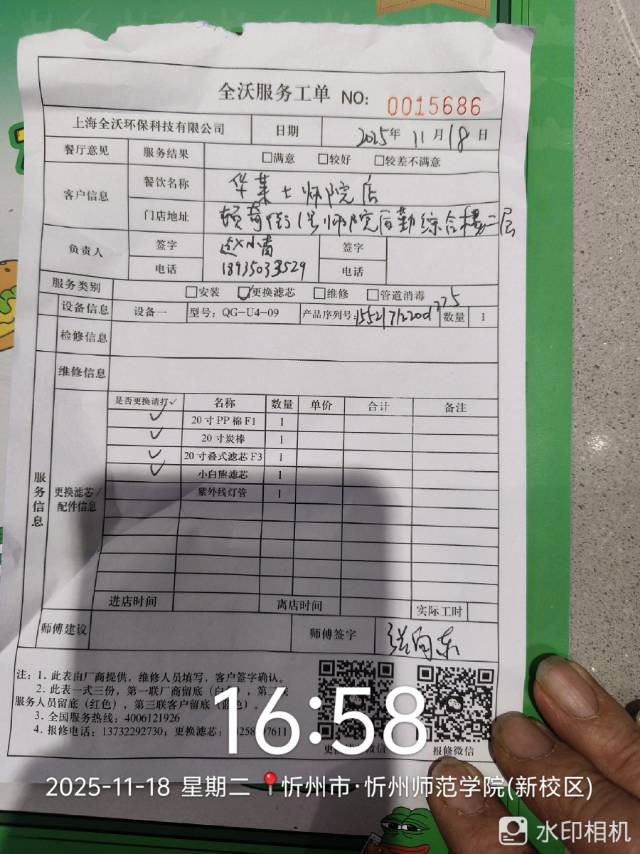 全沃服务工单 NO: 0015686
上海全沃环保科技有限公司 日期 2025年 11月18日
餐厅意见 服务结果 □满意 □较好 □较差不满意
客户信息 餐饮名称 华莱士师院店
门店地址 顿奇街 师院后勤综合楼二层
负责人 签字 签字
电话 18935033529 电话
服务类别 □安装 ☑更换滤芯 □维修 □管道消毒
设备信息 设备一 型号: QG-U4-09 产品序列号: 数量 1
检修信息
维修信息
服务信息
更换滤芯/配件信息
是否更换请打✓ 名称 数量 单价 合计 备注
✓ 20寸PP棉F1 1
✓ 20寸炭棒 1
✓ 20寸叠式滤芯F3 1
✓ 小白熊滤芯 1
紫外线灯管 1
进店时间 离店时间 实际工时
师傅建议 师傅签字 张向东
注: 1. 此表由厂商提供, 维修人员填写, 客户签字确认。
2. 此表一式三份, 第一联厂商留底(白), 第二联
服务人员留底(红色), 第三联客户留底
3. 全国服务热线: 4006121926
4. 报修电话: 13732292730; 更换滤芯: 7611
微信 报修微信
16:58
2025-11-18 星期二 忻州市·忻州师范学院(新校区)
水印相机